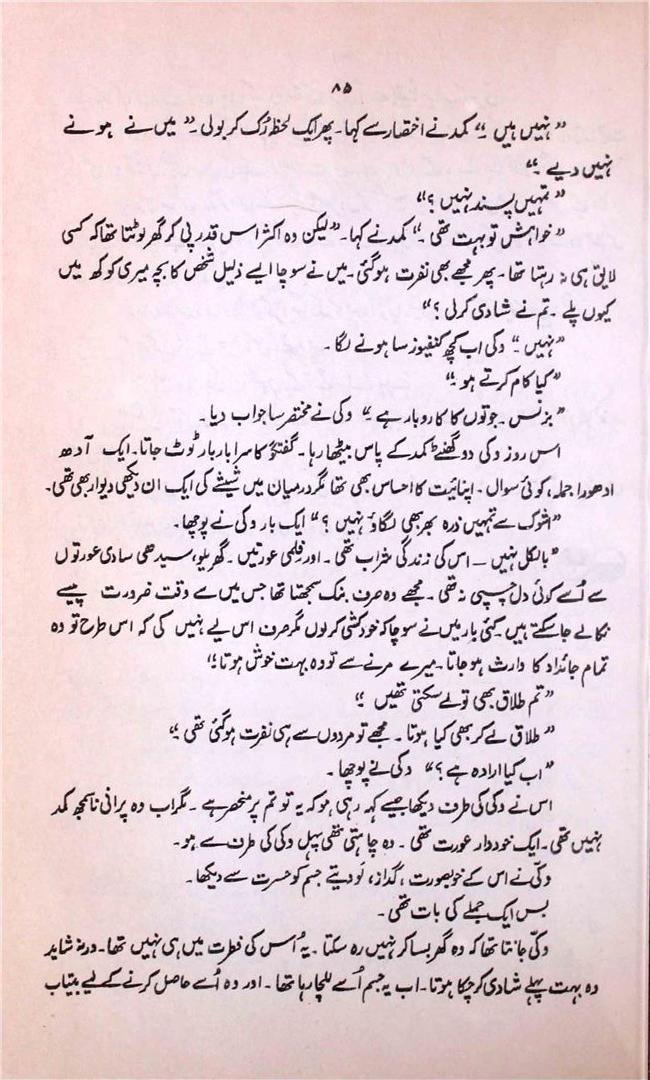 ۸۵
”نہیں ہیں۔“ کمد نے اختصار سے کہا۔ پھر ایک لحظہ رُک کر بولی۔ ”میں نے ہونے
نہیں دیے۔“
”تمہیں پسند نہیں؟“
”خواہش تو بہت تھی۔“ کمد نے کہا۔ ”لیکن وہ اکثر اس قدر پی کر گھر لوٹتا تھا کہ کسی
لایق ہی نہ رہتا تھا۔ پھر مجھے بھی نفرت ہو گئی۔ میں نے سوچا ایسے ذلیل شخص کا بچہ میری کوکھ میں
کیوں پلے۔ تم نے شادی کر لی؟“
”نہیں۔“ وکی اب کچھ کنفیوز سا ہونے لگا۔
”کیا کام کرتے ہو۔“
”بزنس۔ جوتوں کا کاروبار ہے۔“ وکی نے مختصر سا جواب دیا۔
اس روز وکی دو گھنٹے کمد کے پاس بیٹھا رہا۔ گفتگو کا سرا بار بار ٹوٹ جاتا۔ ایک آدھ
ادھورا جملہ، کوئی سوال۔ اپنائیت کا احساس بھی تھا مگر درمیان میں شیشے کی ایک ان دیکھی دیوار بھی تھی۔
”اشوک سے تمہیں ذرہ بھر بھی لگاؤ نہیں؟“ ایک بار وکی نے پوچھا۔
”بالکل نہیں — اس کی زندگی شراب تھی۔ اور فلمی عورتیں۔ گھریلو، سیدھی سادی عورتوں
سے اُسے کوئی دل چسپی نہ تھی۔ مجھے وہ صرف بنک سمجھتا تھا جس میں سے وقت ضرورت پیسے
نکالے جا سکتے ہیں۔ کئی بار میں نے سوچا کہ خودکشی کر لوں مگر صرف اس لیے نہیں کی کہ اس طرح تو وہ
تمام جائداد کا وارث ہو جاتا۔ میرے مرنے سے تو وہ بہت خوش ہوتا۔“
”تم طلاق بھی تو لے سکتی تھیں۔“
”طلاق لے کر بھی کیا ہوتا۔ مجھے تو مردوں سے ہی نفرت ہو گئی تھی۔“
”اب کیا ارادہ ہے؟“ وکی نے پوچھا۔
اس نے وکی کی طرف دیکھا جیسے کہہ رہی ہو کہ یہ تو تم پر منحصر ہے۔ مگر اب وہ پرانی ناسمجھ کمد
نہیں تھی۔ ایک خوددار عورت تھی۔ وہ چاہتی تھی پہل وکی کی طرف سے ہو۔
وکی نے اس کے خوبصورت، گداز، لَو دیتے جسم کو حسرت سے دیکھا۔
بس ایک جملے کی بات تھی۔
وکی جانتا تھا کہ وہ گھر بسا کر نہیں رہ سکتا۔ یہ اُس کی فطرت میں ہی نہیں تھا۔ ورنہ شاید
وہ بہت پہلے شادی کر چکا ہوتا۔ اب یہ جسم اُسے للچا رہا تھا۔ اور وہ اُسے حاصل کرنے کے لیے بیتاب